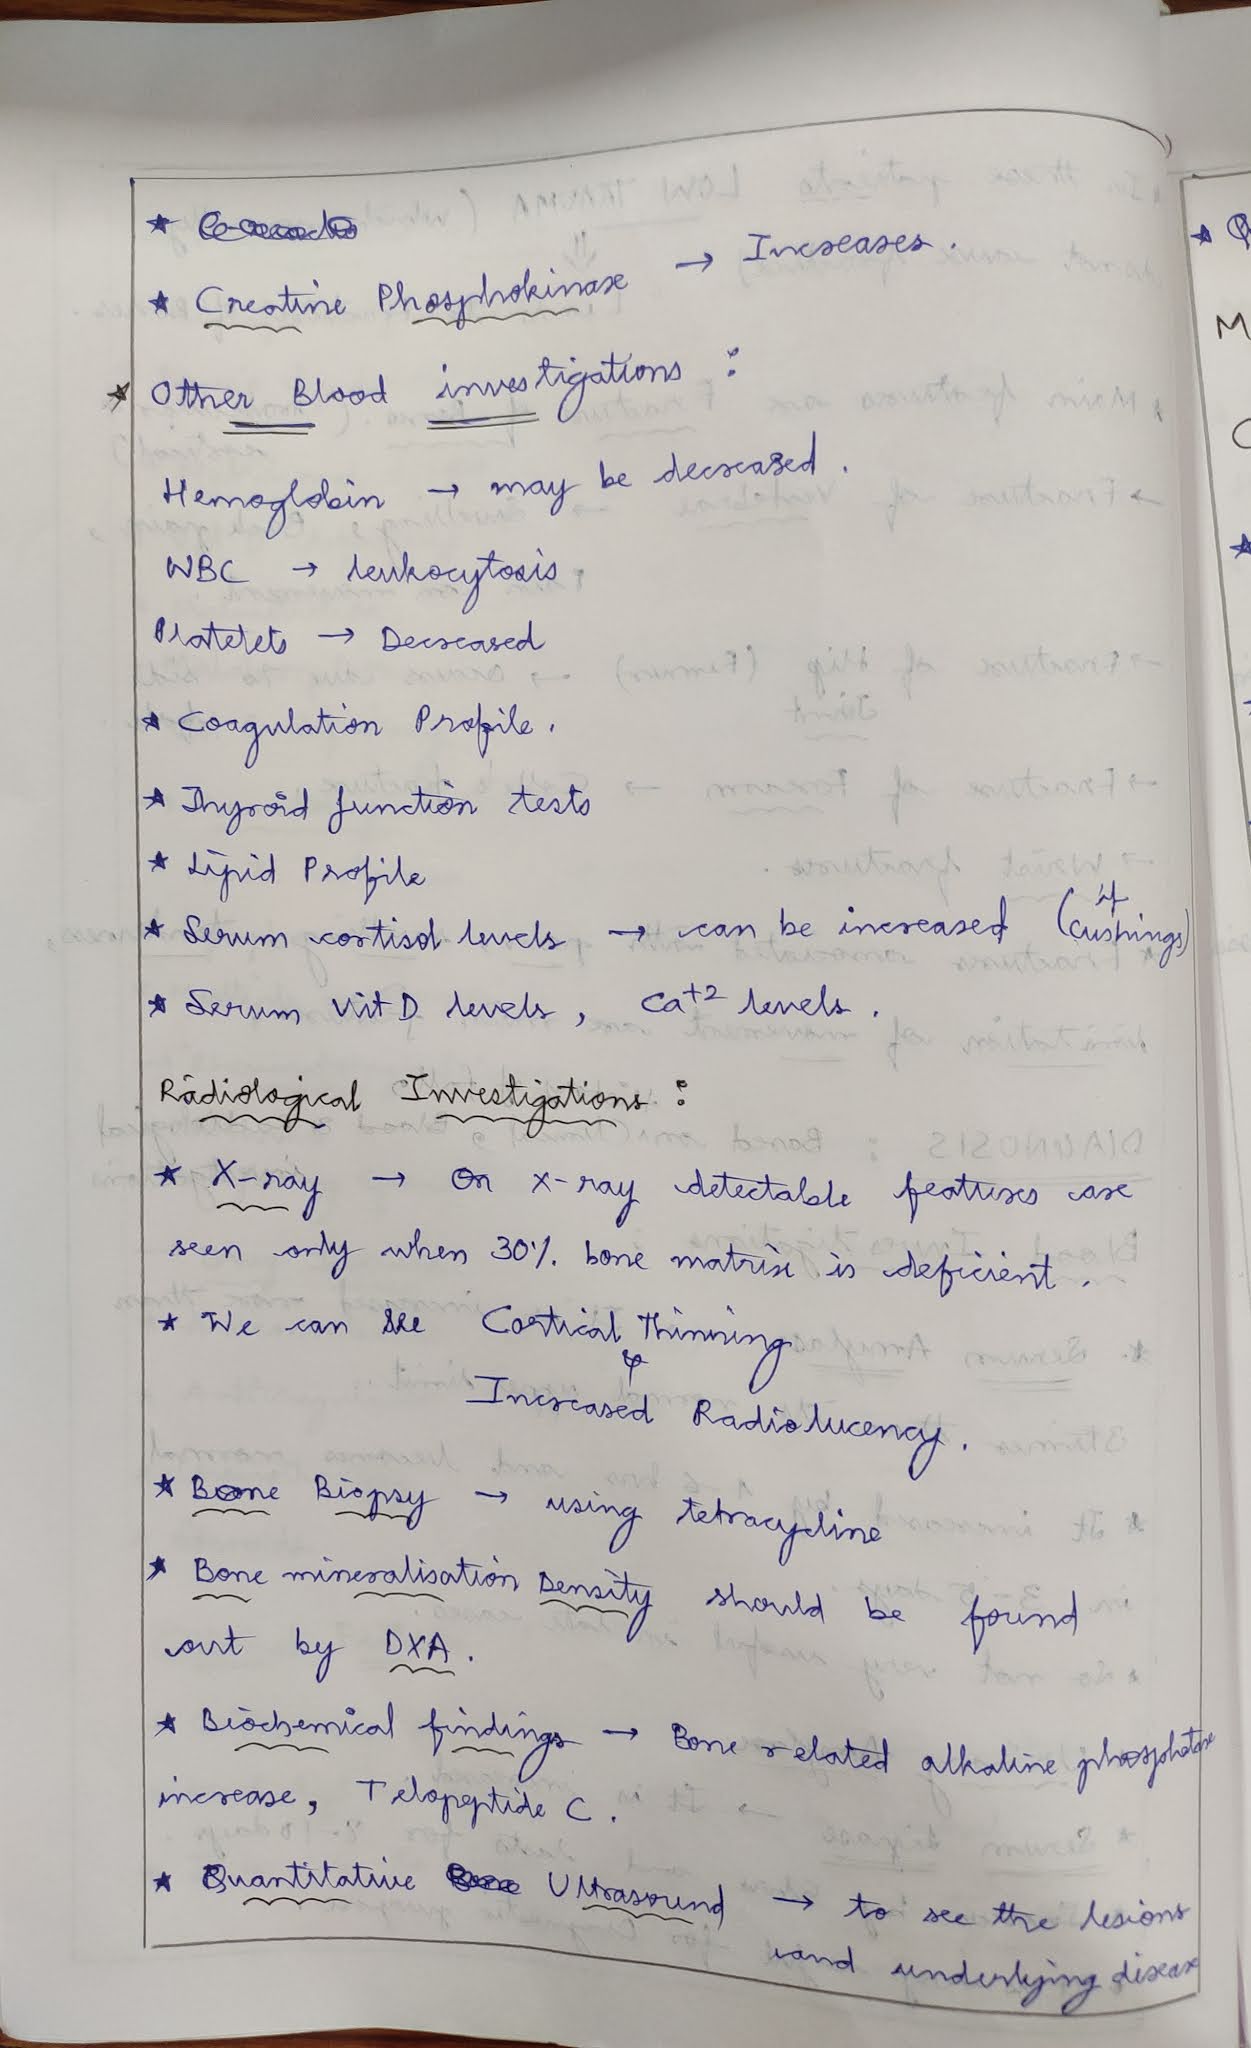 ★ Creatine Phosphokinase → Increases.
★ Other Blood investigations :
Hemoglobin → may be decreased.
WBC → leukocytosis
Platelets → Decreased
★ Coagulation Profile.
★ Thyroid function tests
★ Lipid Profile
★ Serum cortisol levels → can be increased (if cushings)
★ Serum Vit D levels, Ca+2 levels.
Radiological Investigations :
★ X-ray → On X-ray detectable features are
seen only when 30% bone matrix is deficient.
★ We can see Cortical Thinning
&
Increased Radiolucency.
★ Bone Biopsy → using tetracycline
★ Bone mineralisation Density should be found
out by DXA.
★ Biochemical findings → Bone related alkaline phosphatase
increase, Telopeptide C.
★ Quantitative Ultrasound → to see the lesions
and underlying disease